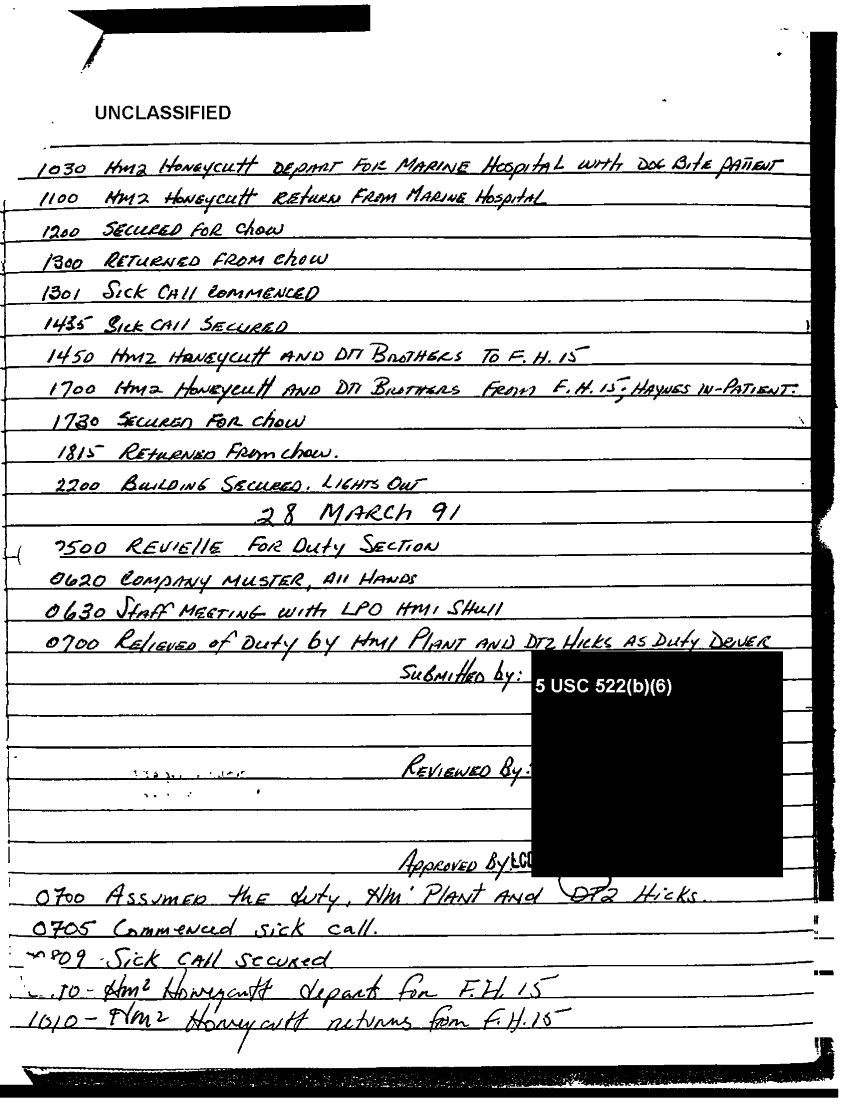 UNCLASSIFIED
1030 HM2 HONEYCUTT DEPART FOR MARINE HOSPITAL WITH DOG BITE PATIENT
1100 HM2 HONEYCUTT RETURN FROM MARINE HOSPITAL
1200 SECURED FOR CHOW
1300 RETURNED FROM CHOW
1301 SICK CALL COMMENCED
1435 SICK CALL SECURED
1450 HM2 HONEYCUTT AND DT1 BROTHERS TO F.H. 15
1700 HM2 HONEYCUTT AND DT1 BROTHERS FROM F.H. 15; HAYNES IN-PATIENT.
1730 SECURED FOR CHOW
1815 RETURNED FROM CHOW.
2200 BUILDING SECURED. LIGHTS OUT
28 MARCH 91
0500 REVIELLE FOR DUTY SECTION
0620 COMPANY MUSTER, ALL HANDS
0630 STAFF MEETING WITH LPO HM1 SHULL
0700 RELIEVED OF DUTY BY HM1 PLANT AND DT2 HICKS AS DUTY DRIVER
SUBMITTED BY:
5 USC 522(b)(6)
REVIEWED BY:
APPROVED BY LCD
0700 ASSUMED THE duty, HM1 PLANT AND DT2 Hicks.
0705 Commenced sick call.
809 - SICK CALL secured
10 - HM2 Honeycutt departs for F.H. 15
1010 - HM2 Honeycutt returns from F.H. 15